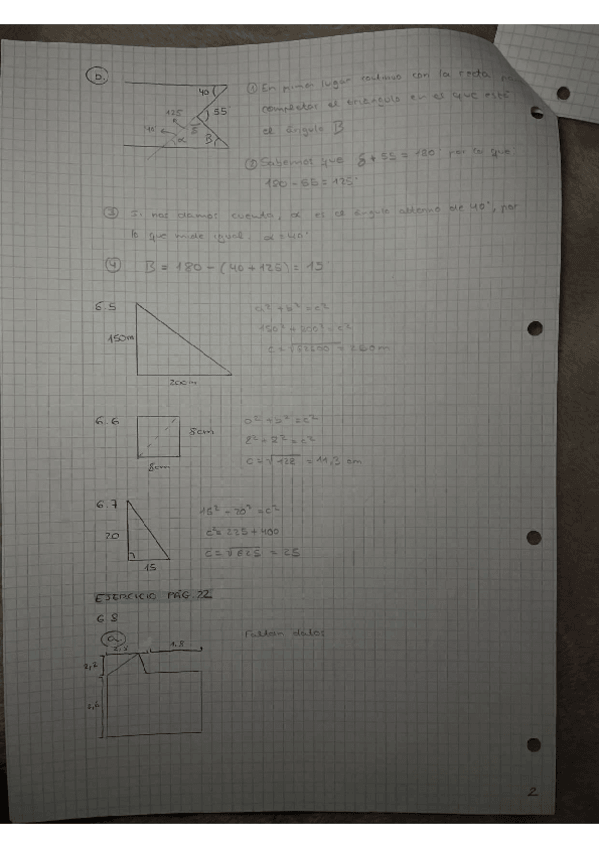 b.
40
55
125
40
α
δ
B
① En primer lugar continuo con la recta
completar el triángulo en el que está
el ángulo B
② Sabemos que δ + 55 = 180 por lo que
180 - 55 = 125
③ Si nos damos cuenta, α es el ángulo alterno de 40°, por
lo que mide igual. α = 40°
④ B = 180 - (40 + 125) = 15
6.5
150m
200m
a² + b² = c²
150² + 200² = c²
6.6
8cm
8cm
a² + b² = c²
8² + 8² = c²
c = √128 = 11,3 cm
6.7
20
15
c² = 225 + 400
c = √625 = 25
EJERCICIO PÁG. 22
6 8
a.
1,8
Faltan datos
2